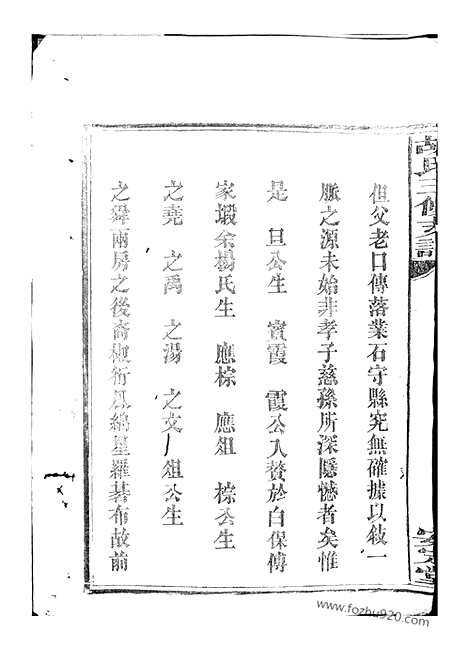 胡氏三修支譜
但父老口傳落業石守縣究無確據以敍一
脈之源未始非孝子慈孫所深隱憾者矣惟
是 旦公生 賓霞 霞公入贅於白保傳
家塅余楊氏生 應棕 應俎 棕公生
之堯 之禹 之湯 之文 俎公生
之舜兩房之後裔椒衍瓜綿星羅碁布故前
安定堂
www.fozhu920.com